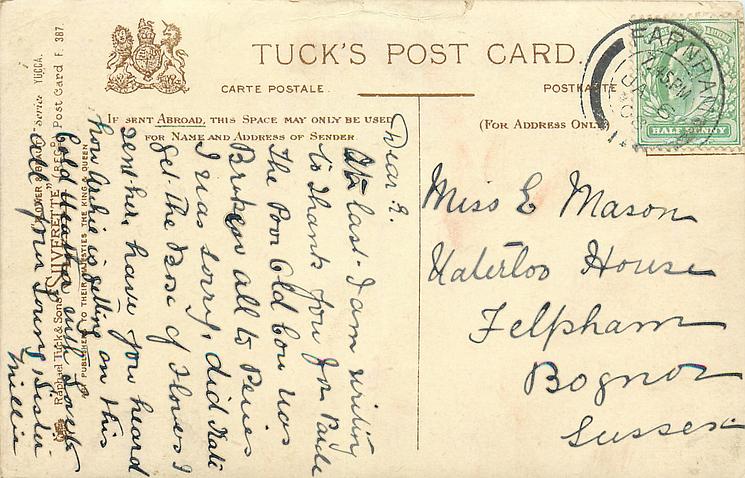 TUCK'S POST CARD.
CARTE POSTALE.
POSTKARTE
IF SENT ABROAD, THIS SPACE MAY ONLY BE USED
FOR NAME AND ADDRESS OF SENDER.
(FOR ADDRESS ONLY)
FARNHAM
7.15PM
JA 6
HALF PENNY
Dear E.
At last. I am writing
to thank you for
The Poor Old Cow was
Broken all to Pices
I was sorry, did Kate
get the Pase of Flowers I
sent her, have you heard
how is getting on this
Cold Weather with Love to
all from your loving Sister
Millie
Miss E Mason
Waterloo House
Felpham
Bognor
Sussex
Series YUCCA.
Raphael Tuck & Sons' "SILVERETTE" Post Card F. 387.
PUBLISHERS TO THEIR MAJESTIES THE KING & QUEEN